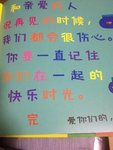 和亲爱的人
说再见的时候，
我们都会很伤心。
你要一直记住
我们在一起的
快乐时光。
完
爱你们的，